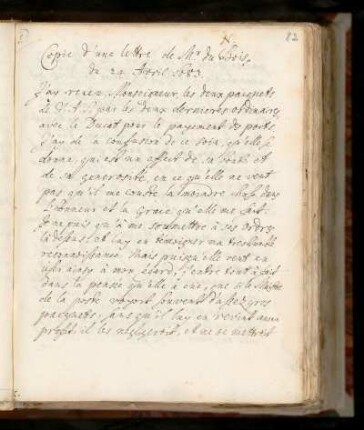 82
Copie d'une lettre de Mr du Bois,
du 22 Avril 1683.
J'ay receu Monseigneur, les deux pacquets
de V. A. S. par les deux derniers ordinaires,
avec le Ducat pour le payement des ports
J'ay de la confusion de ce soin, qu'elle se
donne, qui est un effect de sa bonté et
de sa generosité, en ce qu'elle ne veut
pas qu'il me coute la moindre chose dans
l'honneur et la grace qu'elle me fait.
Je ne puis qu'à me soumettre à ses ordres
là dessus, et luy en témoigner ma treshumble
reconnoissance. Mais puisqu'elle veut en
user ainsy à mon égard, j'entre tout à fait
dans la pensée qu'elle a eüe, que si le Maitre
de la poste voyoit souvent d'assez gros
pacquets, sans qu'il luy en revint aucun
profit, il les negligeroit, et ne se mettroit